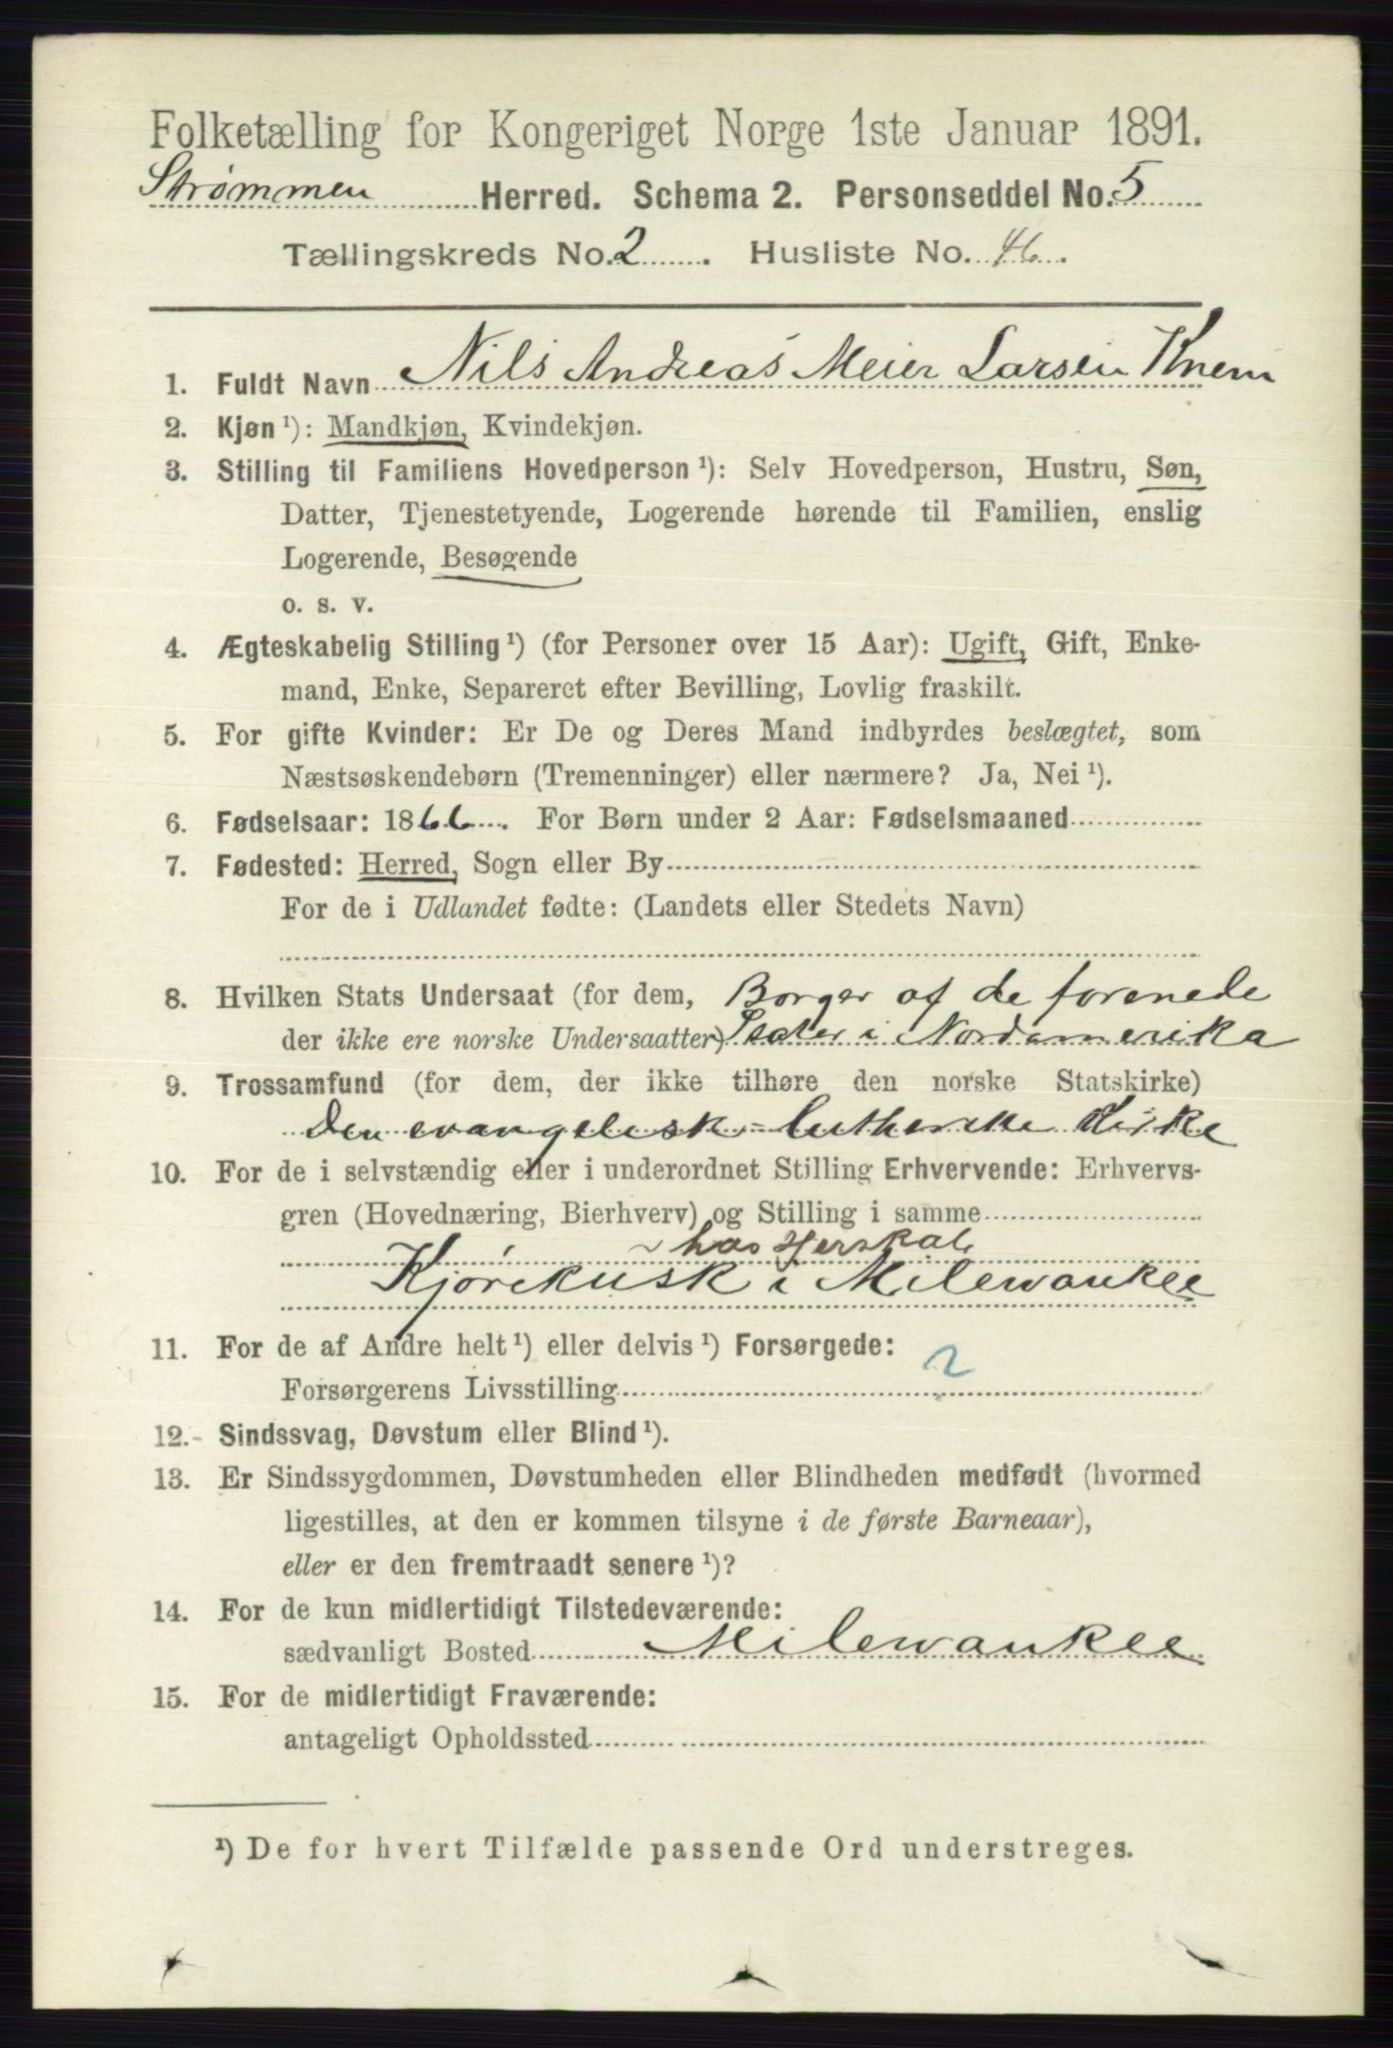 Folketælling for Kongeriget Norge 1ste Januar 1891.
Strømmen Herred. Schema 2. Personseddel No. 5
Tællingskreds No. 2. Husliste No. 46.
1. Fuldt Navn Nils Andreas Meier Larsen Knem
2. Kjøn ¹): Mandkjøn, Kvindekjøn.
3. Stilling til Familiens Hovedperson ¹): Selv Hovedperson, Hustru, Søn,
Datter, Tjenestetyende, Logerende hørende til Familien, enslig
Logerende, Besøgende
o. s. v.
4. Ægteskabelig Stilling ¹) (for Personer over 15 Aar): Ugift, Gift, Enke-
mand, Enke, Separeret efter Bevilling, Lovlig fraskilt.
5. For gifte Kvinder: Er De og Deres Mand indbyrdes beslægtet, som
Næstsøskendebørn (Tremenninger) eller nærmere? Ja, Nei ¹).
6. Fødselsaar: 1866. For Børn under 2 Aar: Fødselsmaaned
7. Fødested: Herred, Sogn eller By
For de i Udlandet fødte: (Landets eller Stedets Navn)
8. Hvilken Stats Undersaat (for dem, Borger af de forenede
der ikke ere norske Undersaatter) Stater i Nordamerika
9. Trossamfund (for dem, der ikke tilhøre den norske Statskirke)
Den evangelisk-lutherske Kirke
10. For de i selvstændig eller i underordnet Stilling Erhvervende: Erhvervs-
gren (Hovednæring, Bierhverv) og Stilling i samme
~ hos Herskab
Kjørekusk i Milewaukee
11. For de af Andre helt ¹) eller delvis ¹) Forsørgede:
Forsørgerens Livsstilling 2
12. Sindssvag, Døvstum eller Blind ¹).
13. Er Sindssygdommen, Døvstumheden eller Blindheden medfødt (hvormed
ligestilles, at den er kommen tilsyne i de første Barneaar),
eller er den fremtraadt senere ¹)?
14. For de kun midlertidigt Tilstedeværende:
sædvanligt Bosted Milewaukee
15. For de midlertidigt Fraværende:
antageligt Opholdssted
¹) De for hvert Tilfælde passende Ord understreges.